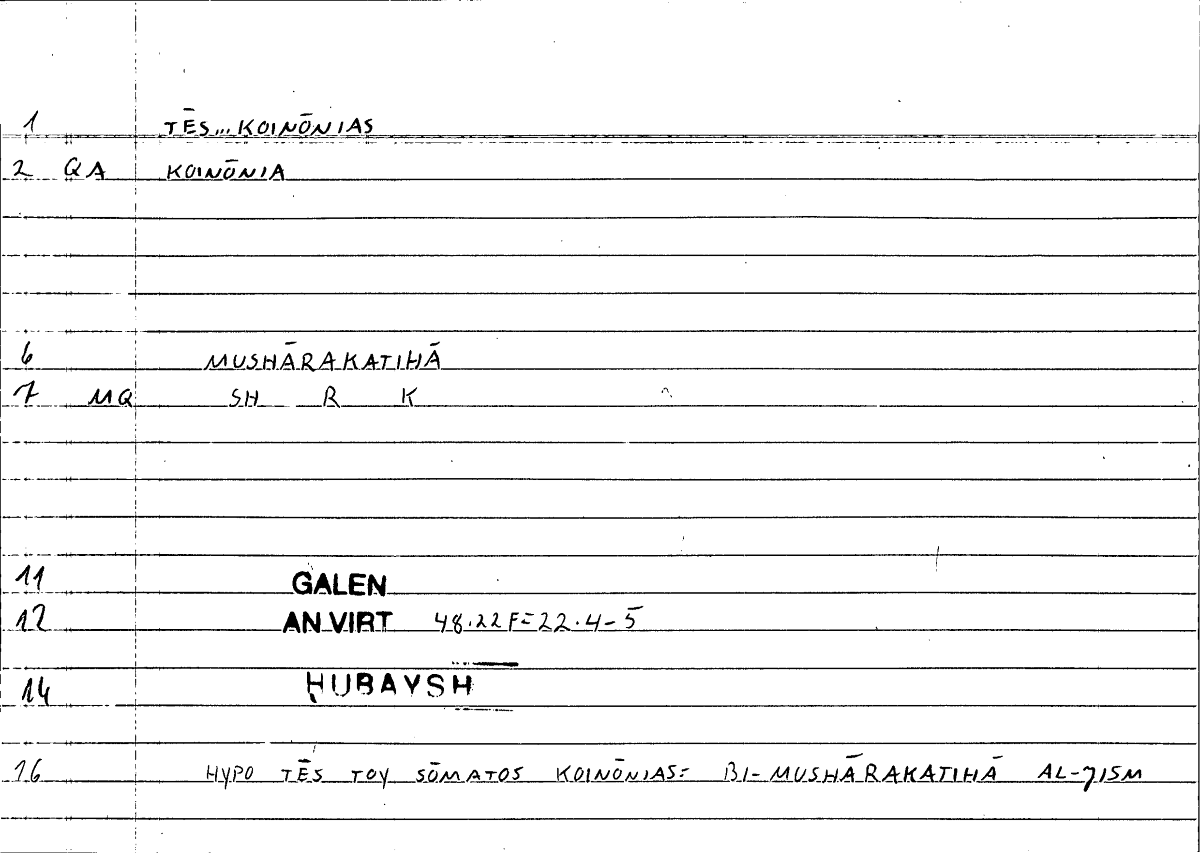 1 TĒS... KOINŌNIAS
2 QA KOINŌNIA
6 MUSHĀRAKATIHĀ
7 MQ SH R K
11 GALEN
12 AN VIRT 48.22F=22.4-5
14 ḤUBAYSH
16 HYPO TĒS TOY SŌMATOS KOINŌNIAS= BI-MUSHĀRAKATIHĀ AL-JISM